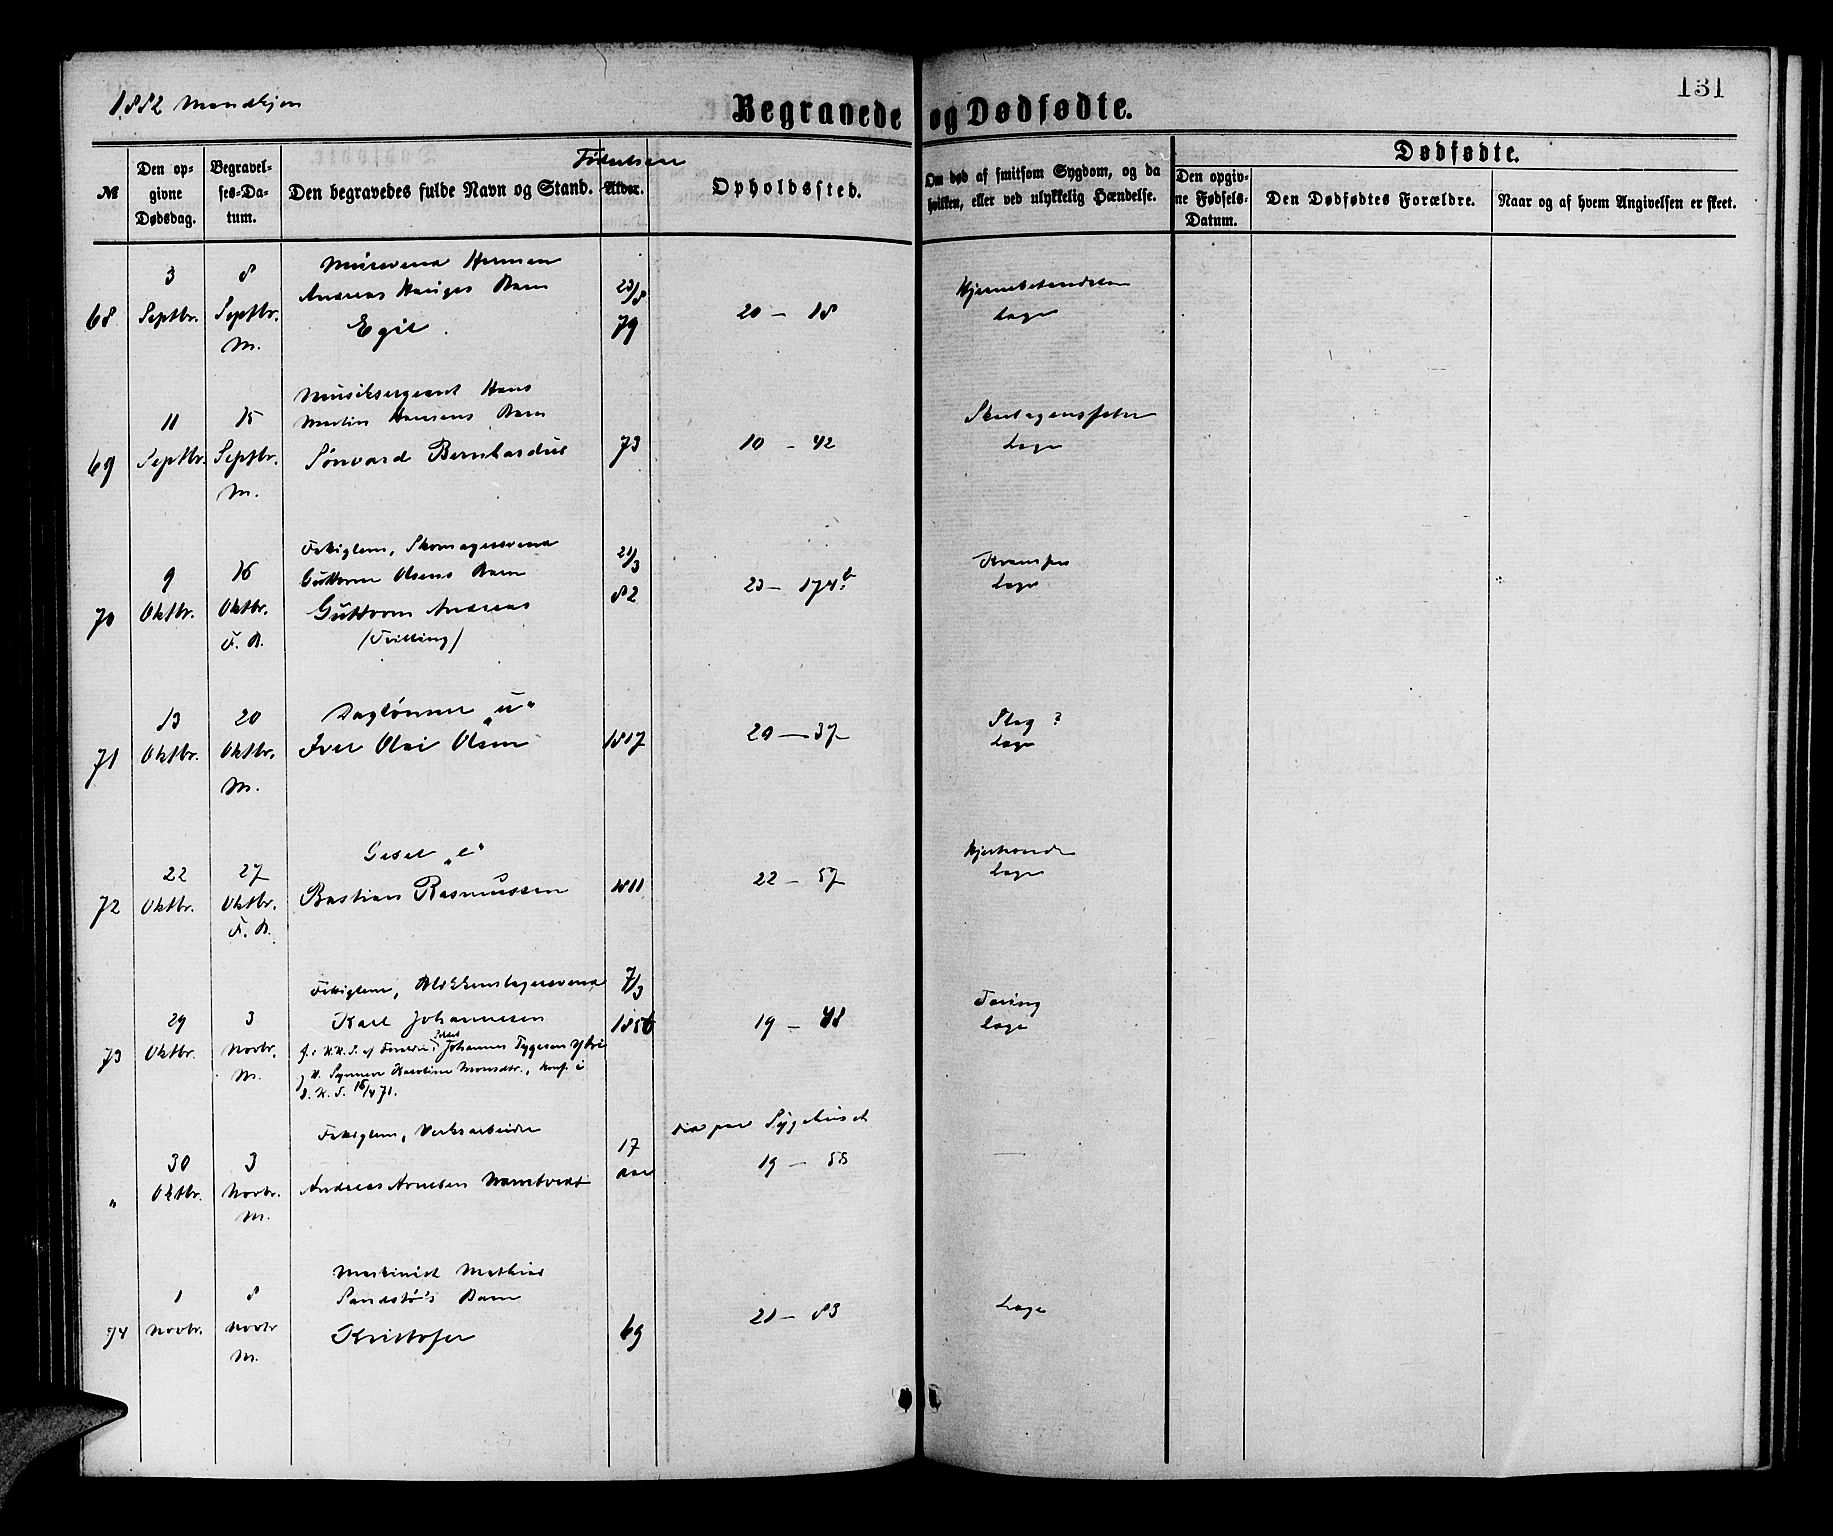 1882 Mandkjøn
Begravede og Dødfødte.
131
№
Den op-
givne
Dødsdag.
Begravel-
ses-Da-
tum.
Den begravedes fulde Navn og Stand.
Alder.
Opholdssted.
Om død af smitsom Sygdom, og da
hvilken, eller ved ulykkelig Hændelse.
Dødfødte.
Den opgiv-
ne Fødsels-
Datum.
Den Dødfødtes Forældre.
Naar og af hvem Angivelsen er skeet.
68
3
Septbr.
8
Septbr.
M.
Herman
Andreas Hauges Barn
Egil.
23/8
79
20 — 18
Hjernebetændelse
Læge
69
11
Septbr.
15
Septbr.
M.
Musiksergeant Hans
Martin Hansens Barn
Bernhardus
73
10 — 42
Skarlagensfeber
Læge
70
9
Oktbr.
16
Oktbr.
F. A.
Fattiglem, Skomagersvend
Guttorm Olsens Barn
Guttorm Andreas
(Tvilling)
21/3
82
23 — 174b
Læge
71
13
Oktbr.
20
Oktbr.
M.
Daglønner „u“
Iver Olai Olsen
1817
20 — 37
Slag ?
Læge
72
22
Oktbr.
27
Oktbr.
F. A.
Gesel „e“
Bastian Rasmussen
1811
22 — 57
Læge
73
29
Oktbr.
3
Novbr.
M.
Fattiglem, Blikkenslagersvend
Karl Johannesen
Johannes Tygesen
Karoline Monsdtr., konf. i
D. K. S. 16/4 71.
7/3
1856
19 — 48
Tæring
Læge
„
30
Oktbr.
3
Novbr.
M.
Fattiglem, Verksarbeider
Andreas Arnesen
17
aar
død paa Sygehuset
19 — 58
74
1
Novbr.
8
Novbr
M.
Maskinist Mathias
Sandstø's Barn
Kristofer
69
21 — 83
Læge